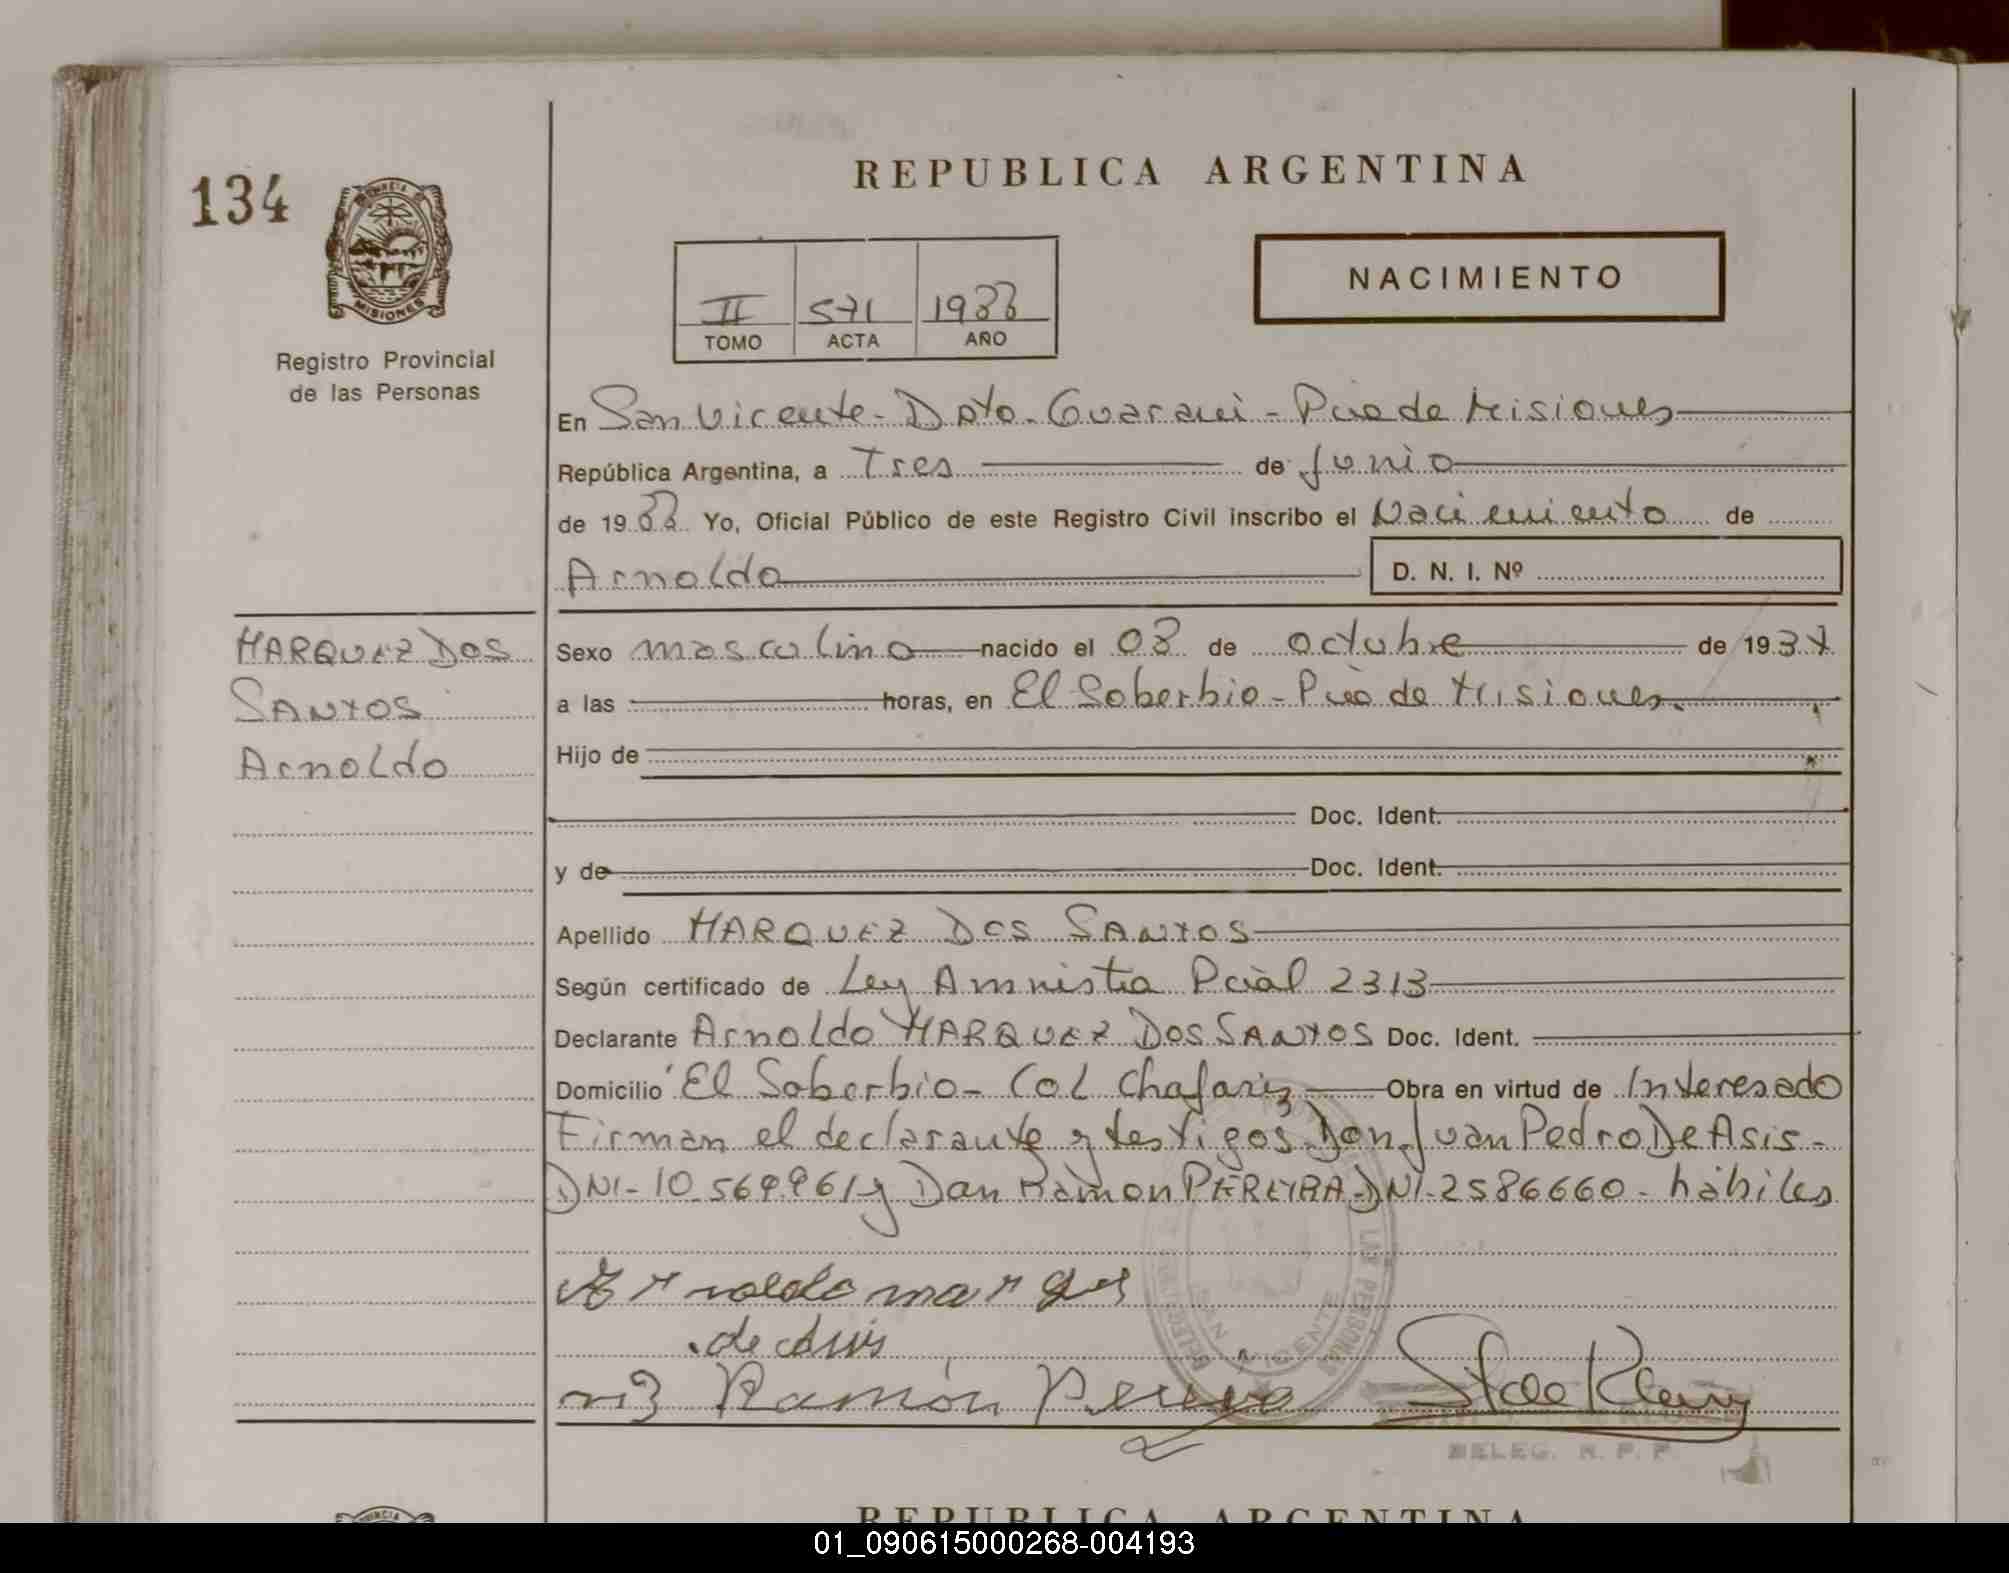 REPUBLICA ARGENTINA
134
PROVINCIA
MISIONES
Registro Provincial
de las Personas
II 571
TOMO ACTA AÑO
NACIMIENTO
En San Vicente - Dpto. Guarani - Pcia de Misiones
República Argentina, a Tres de junio
de 19 Yo, Oficial Público de este Registro Civil inscribo el Nacimiento de
Arnoldo D. N. I. Nº
MARQUEZ DOS
SANTOS
Arnoldo
Sexo masculino nacido el 08 de octubre de 1937
a las horas, en El Soberbio - Pcia de Misiones.
Hijo de
Doc. Ident.
y de Doc. Ident.
Apellido MARQUEZ DOS SANTOS
Según certificado de Ley Amnistia Pcial 2313
Declarante Arnoldo MARQUEZ DOS SANTOS Doc. Ident.
Domicilio El Soberbio - Col Chafariz Obra en virtud de Interesado
Firman el declarante y testigos Don Juan Pedro De Asis -
DNI - 10.569.961 y Don Ramon PEREIRA - DNI - 2586660 - hábiles
Arnoldo marques
de
Ramón Pereira
SAN VICENTE
LAS PERSONAS
DELEG. R. P. P.
REPUBLICA ARGENTINA
01_090615000268-004193